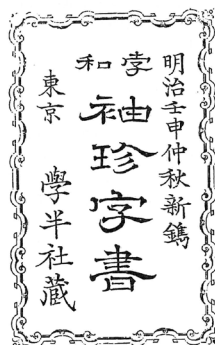 明治壬申仲秋新鐫
孛和
袖珍字書
東京
學半社藏